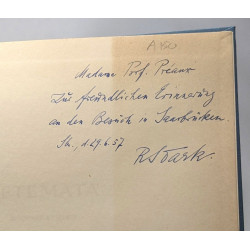 A150
Madame Prof. Préaux
zur freundlichen Erinnerung
an den Besuch in Saarbrücken.
Sbr., d. 29.6.57
R Stark.